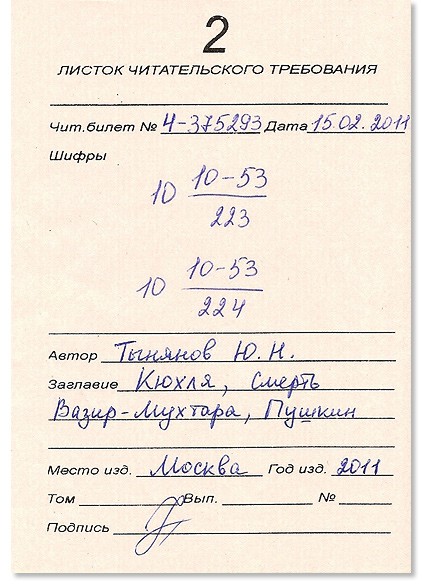 2
ЛИСТОК ЧИТАТЕЛЬСКОГО ТРЕБОВАНИЯ
Чит.билет № 4-375293 Дата 15.02.2011
Шифры
10 10-53
223
10 10-53
224
Автор Тынянов Ю.Н.
Заглавие Кюхля, Смерть
Вазир-Мухтара, Пушкин
Место изд. Москва Год изд. 2011
Том Вып. №
Подпись